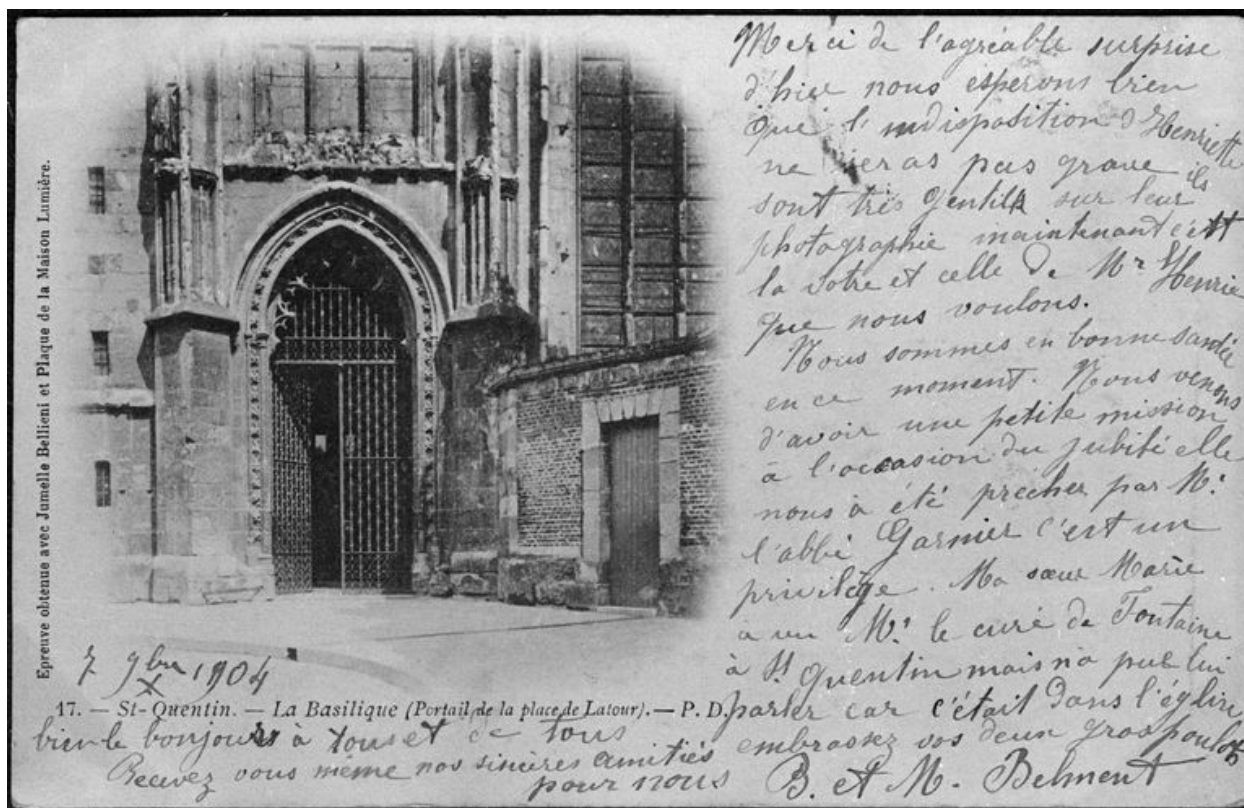 Epreuve obtenue avec Jumelle Bellieni et Plaque de la Maison Lumière.
Merci de l'agréable surprise
d'hier nous esperons bien
que l'indisposition d'Henriette
ne seras pas grave ils
sont très gentils sur leur
photographie maintenant c'est
la votre et celle de Mr Henrie
que nous voulons.
Nous sommes en bonne santée
en ce moment. Nous venons
d'avoir une petite mission
à l'occasion du jubilé elle
nous à été précher par Mr
l'abbé Garnier c'est un
privilège. Ma sœur Marie
à vu Mr le curé de Fontaine
à St Quentin mais n'a pu lui
parler car c'était dans l'église
embrassez vos deux gros poulots
pour nous B. et M. Belment
7 9bre 1904
17. — St-Quentin. — La Basilique (Portail de la place de Latour). — P. D.
bien le bonjour à tous et de tous
Recevez vous même nos sincères amitiés